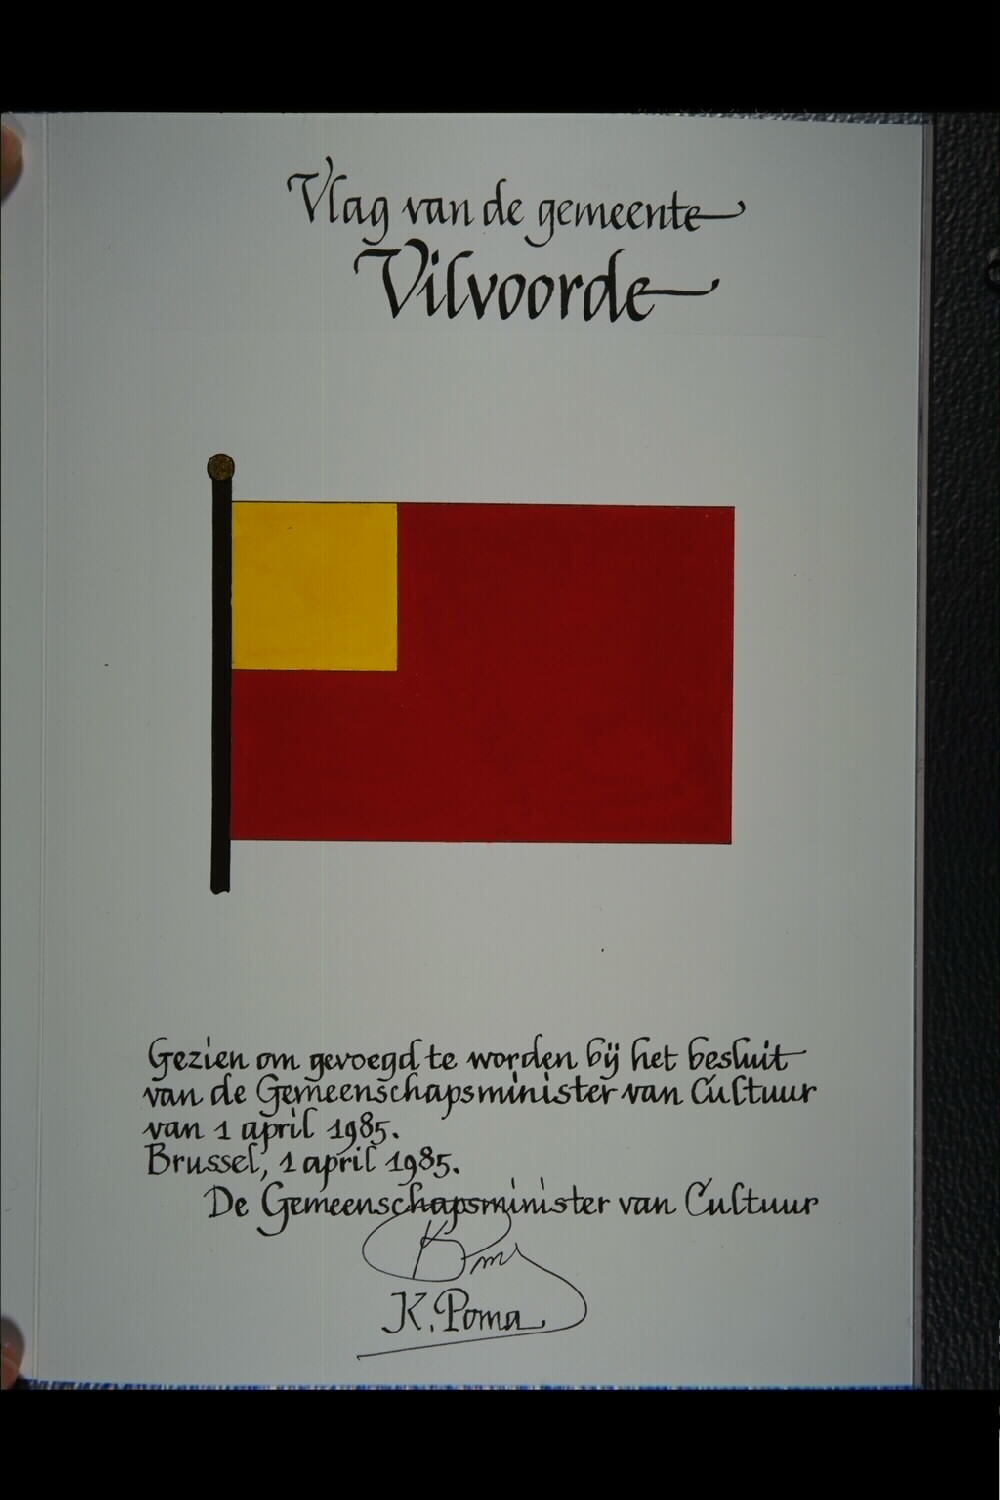 Vlag van de gemeente
Vilvoorde
Gezien om gevoegd te worden bij het besluit
van de Gemeenschapsminister van Cultuur
van 1 april 1985.
Brussel, 1 april 1985.
De Gemeenschapsminister van Cultuur
K. Poma